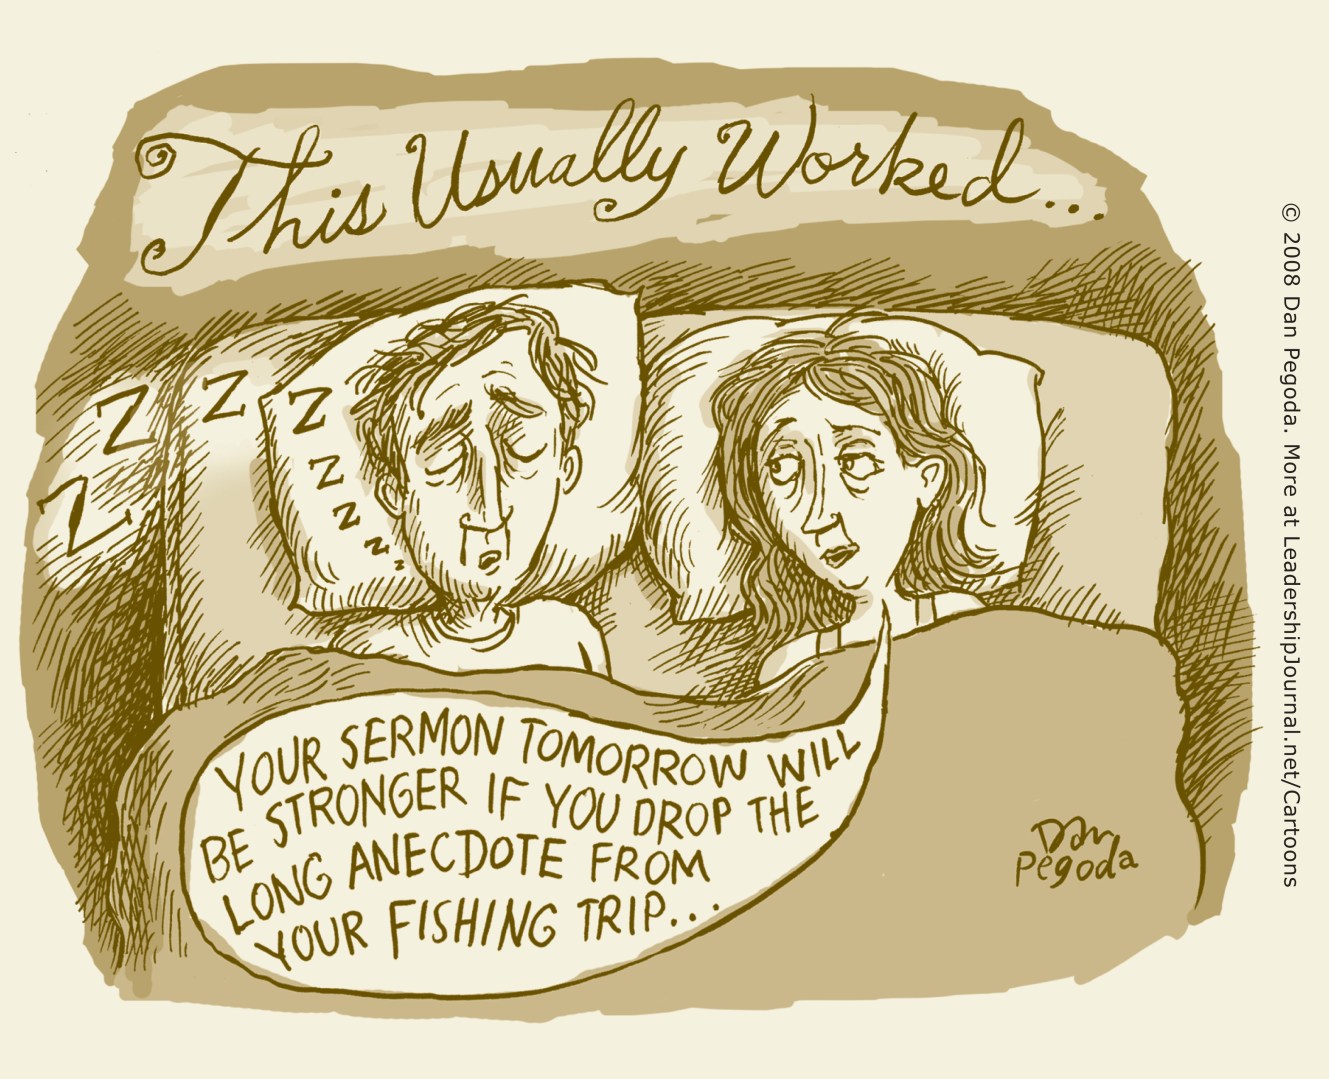 This Usually Worked...
Z
Z
Z
Z
Z
Z
Z
YOUR SERMON TOMORROW WILL
BE STRONGER IF YOU DROP THE
LONG ANECDOTE FROM
YOUR FISHING TRIP...
Dan
Pegoda
© 2008 Dan Pegoda. More at LeadershipJournal.net/Cartoons